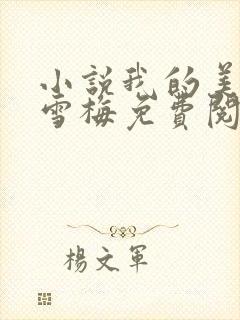 小說我的美
雪梅免費閱
楊文軍